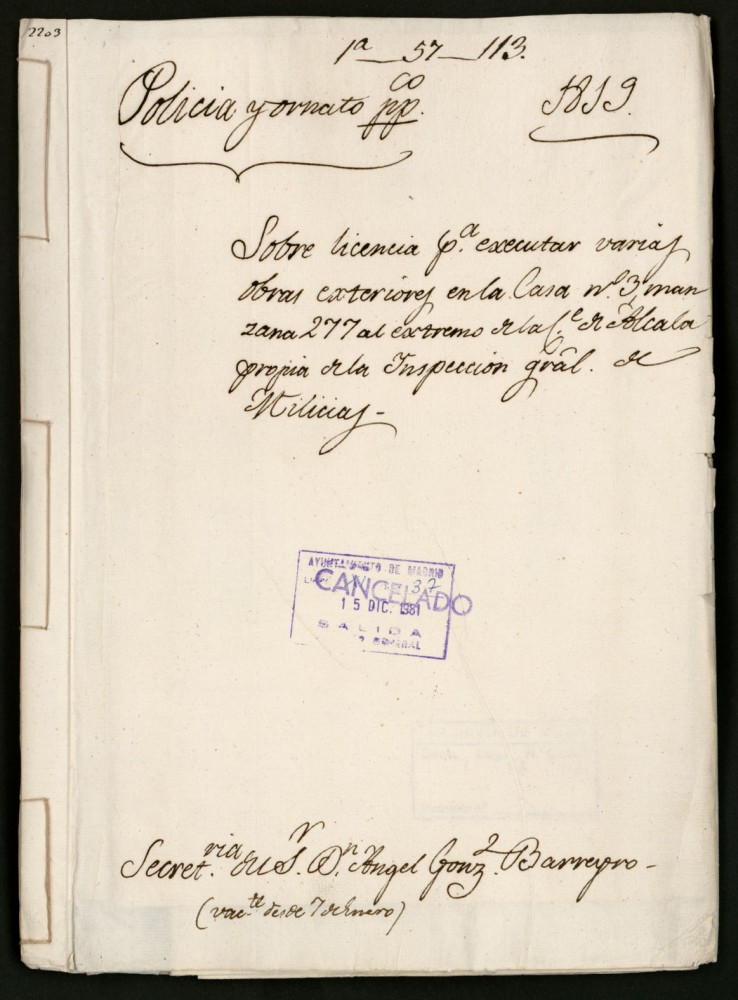 2203
1ª 57 113.
Policia y ornato ppco. 1819.
Sobre licencia pª. executar varias
obras exteriores en la Casa nº. 3, man
zana 277 al extremo de la Ce. de Alcala
propia de la Inspeccion gral. de
Milicias-
AYUNTAMIENTO DE MADRID
37
CANCELADO
15 DIC. 1981
SALIDA
GENERAL
Secretria. del Sr. Dn. Angel Gonzz. Barreyro-
(vacte. desde 7 de Enero)